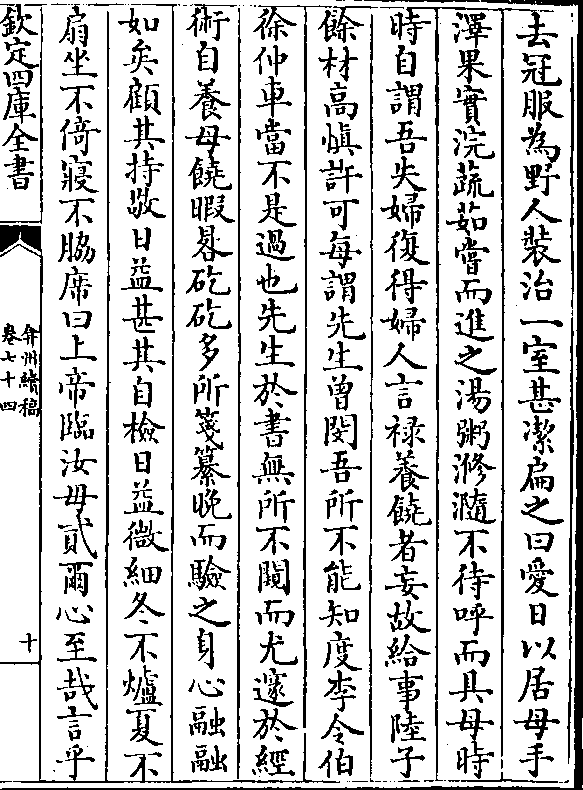 去冠服為野人裝治一室甚潔扁之曰愛日以居母手
澤果實浣蔬茹嘗而進之湯粥滫瀡不待呼而具母時
時自謂吾失婦復得婦人言禄養饒者妄故給事陸子
餘材高慎許可每謂先生曾閔吾所不能知度李令伯
徐仲車當不是過也先生於書無所不闚而尤邃於經
術自養母饒暇晷矻矻多所箋纂晚而驗之身心融融
如矣顧其持敬日益甚其自檢日益微細冬不爐夏不
扇坐不倚寢不脇席曰上帝臨汝母貳爾心至哉言乎
欽定四庫全書
弇州續稿
卷七十四
十